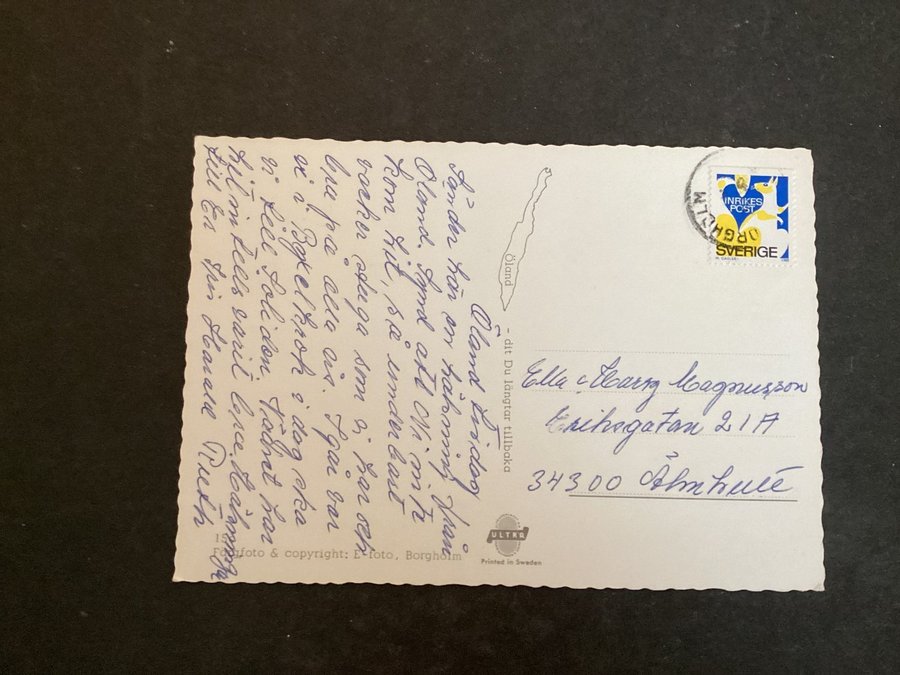 Öland Tisdag
Sänder här en hälsning från
Öland. Synd att Ni inte
kom hit, så underbart
vacker stuga som vi har och
bra på alla vis. Igår var
vi i Byxelkrok idag ska
vi till Solliden. Vädret har
hittintills varit bra. Hälsningar
till Er från Harald Ruth
Öland - dit Du längtar tillbaka
15
Färgfoto & copyright: E-foto, Borgholm
ULTRA
Printed in Sweden
INRIKES
POST
SVERIGE
BORGHOLM
Ella o Harry Magnusson
Eriksgatan 21A
34300 Älmhult